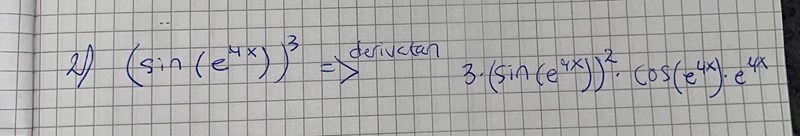 2) (sin(e^4x))^3 => derivatan 3·(sin(e^4x))^2 · cos(e^4x)·e^4x